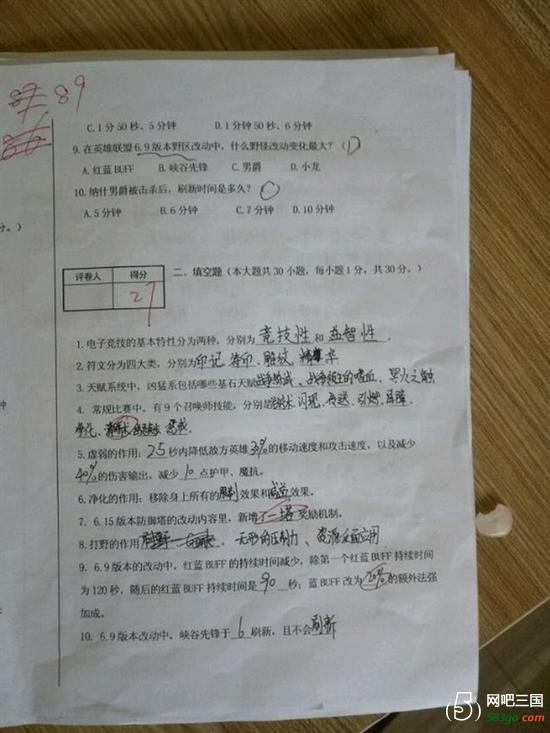 89
C.1分50秒、5分钟 D.1分钟50秒、6分钟
9.在英雄联盟6.9版本野区改动中，什么野怪改动变化最大？（D）
A.红蓝BUFF B.峡谷先锋 C.男爵 D.小龙
10.纳什男爵被击杀后，刷新时间是多久？
A.5分钟 B.6分钟 C.7分钟 D.10分钟
分。）
评卷人 得分
27
二、填空题（本大题共30小题，每小题1分，共30分。）
1.电子竞技的基本特性分为两种，分别为竞技性和益智性.
2.符文分为四大类，分别为印记 符印、雕纹、精华
3.天赋系统中，凶猛系包括哪些基石天赋战争热诚、战争领主的嗜血、死火之触
4.常规比赛中，有9个召唤师技能，分别是 闪现、传送、引燃、屏障、
净化、惩戒.
5.虚弱的作用：2.5秒内降低敌方英雄30%的移动速度和攻击速度，以及减少
40%的伤害输出，减少10点护甲、魔抗。
6.净化的作用：移除身上所有的效果和减益效果。
7.6.15版本防御塔的改动内容里，新增了一塔奖励机制。
8.打野的作用 无形的压制力、资源反应用
9.6.9版本的改动中，红蓝BUFF的持续时间减少，除第一个红蓝BUFF持续时间
为120秒，随后的红蓝BUFF持续时间是90秒；蓝BUFF改为20%的额外法强
加成。
10.6.9版本改动中，峡谷先锋于6刷新，且不会刷新
钟
网吧三国
583go.com